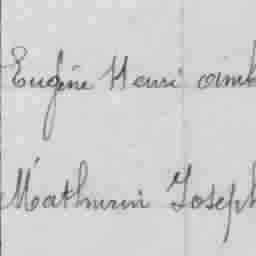 Eugène Henri
Mathurin Joseph